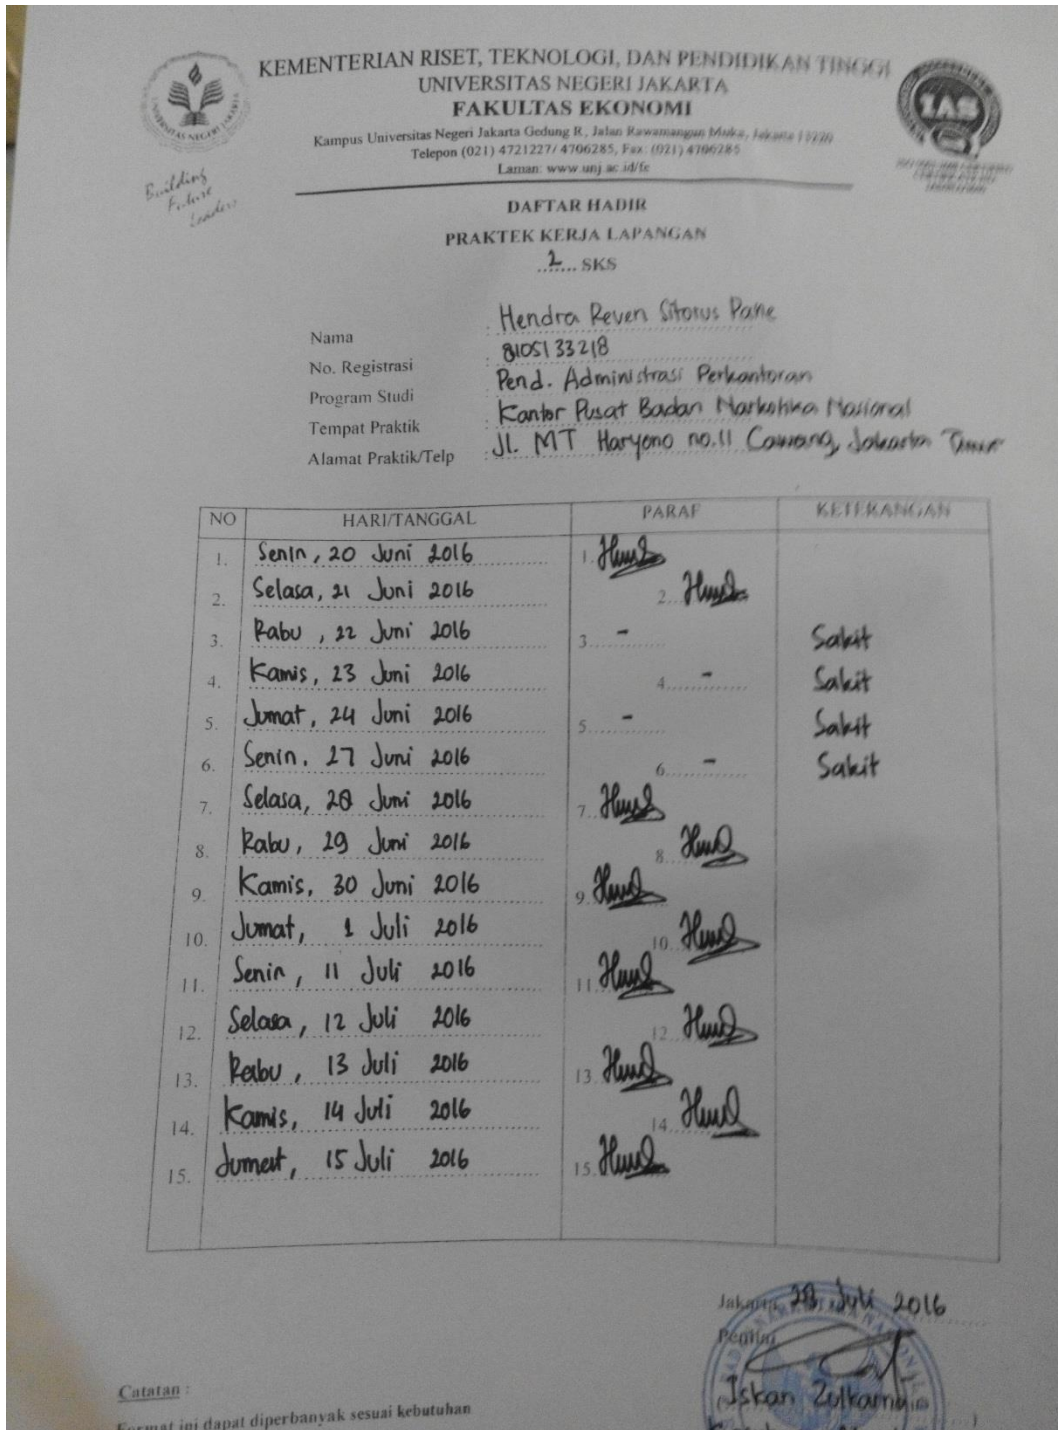 KEMENTERIAN RISET, TEKNOLOGI, DAN PENDIDIKAN TINGGI
UNIVERSITAS NEGERI JAKARTA
FAKULTAS EKONOMI
Kampus Universitas Negeri Jakarta Gedung R, Jalan Rawamangun Muka, Jakarta 13220
Telepon (021) 4721227/ 4706285, Fax: (021) 4706285
Laman: www.unj.ac.id/fe
UNIVERSITAS NEGERI JAKARTA
IAS
Building
Future
Leaders
DAFTAR HADIR
PRAKTEK KERJA LAPANGAN
2 SKS
Nama : Hendra Reven Sitorus Pane
No. Registrasi : 8105133218
Program Studi : Pend. Administrasi Perkantoran
Tempat Praktik : Kantor Pusat Badan Narkotika Nasional
Alamat Praktik/Telp : Jl. MT Haryono no.11 Cawang, Jakarta Timur
NO HARI/TANGGAL PARAF KETERANGAN
1. Senin, 20 Juni 2016 1.
2. Selasa, 21 Juni 2016 2.
3. Rabu, 22 Juni 2016 3. - Sakit
4. Kamis, 23 Juni 2016 4. - Sakit
5. Jumat, 24 Juni 2016 5. - Sakit
6. Senin, 27 Juni 2016 6. - Sakit
7. Selasa, 28 Juni 2016 7.
8. Rabu, 29 Juni 2016 8.
9. Kamis, 30 Juni 2016 9.
10. Jumat, 1 Juli 2016 10.
11. Senin, 11 Juli 2016 11.
12. Selasa, 12 Juli 2016 12.
13. Rabu, 13 Juli 2016 13.
14. Kamis, 14 Juli 2016 14.
15. Jumat, 15 Juli 2016 15.
Jakarta, 28 Juli 2016
Iskan Zulkarnain
Catatan :
Format ini dapat diperbanyak sesuai kebutuhan